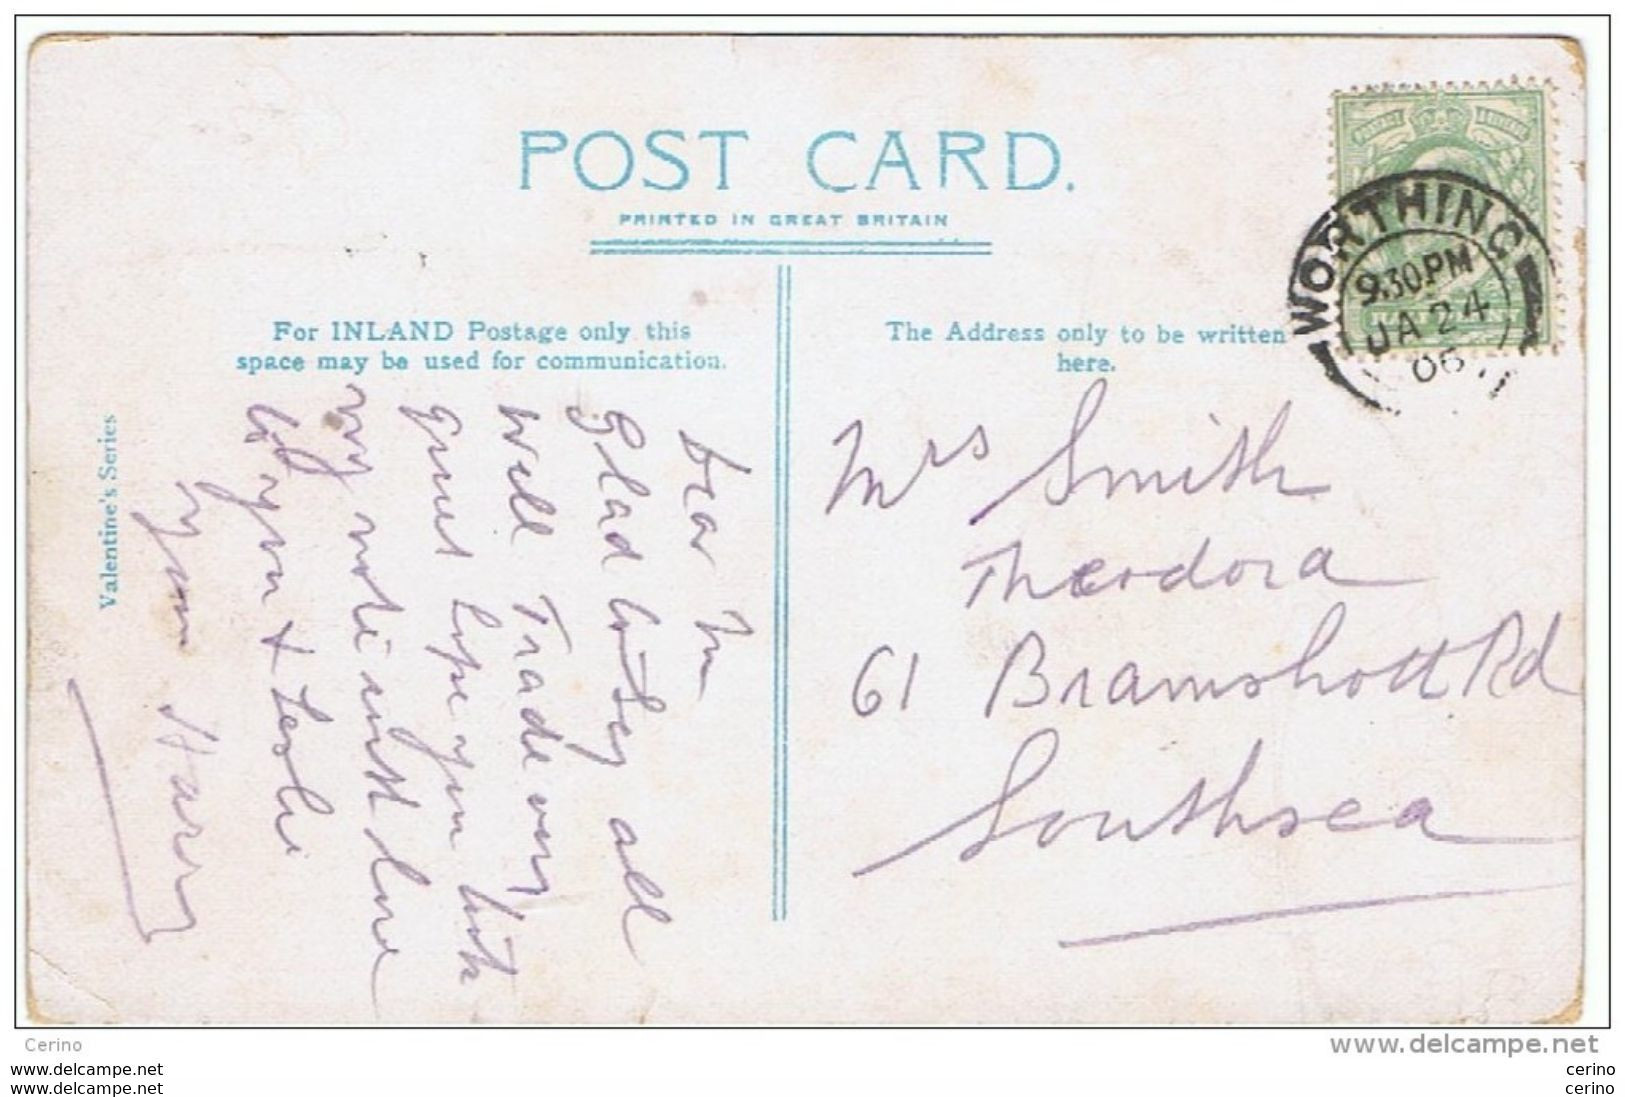 POST CARD.
PRINTED IN GREAT BRITAIN
For INLAND Postage only this
space may be used for communication.
The Address only to be written
here.
WORTHING
9.30PM
JA 24
06
Valentine's Series
Dear
Glad to say all
well Trade very
quiet hope you both
love
to you & Leslie
Yours Harry
Mrs Smith
Theodora
61 Bramshott Rd
Southsea
Cerino
www.delcampe.net
cerino
cerino
cerino
cerino